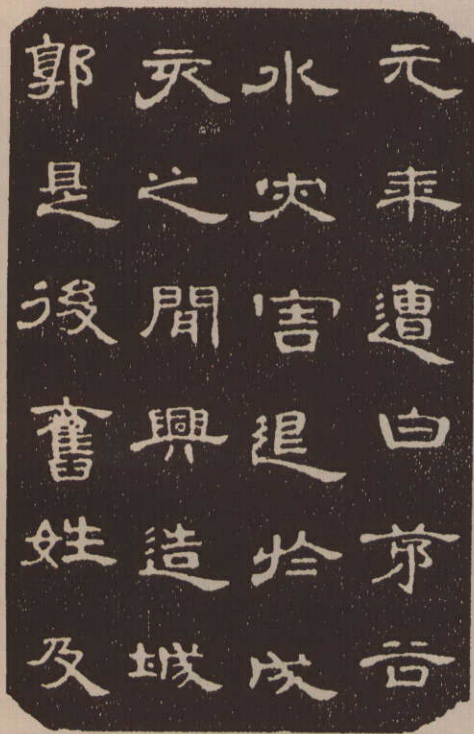 元年遭白茅谷
水灾害退於戌
亥之間興造城
郭是後舊姓及